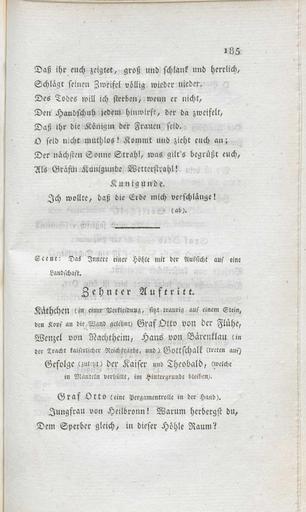 185
Daß ihr euch zeigtet, groß und schlank und herrlich,
Schlägt seinen Zweifel völlig wieder nieder.
Des Todes will ich sterben, wenn er nicht,
Den Handschuh jedem hinwirft, der da zweifelt,
Daß ihr die Königin der Frauen seid.
O seid nicht muthlos! Kommt und zieht euch an;
Der nächsten Sonne Strahl, was gilt's begrüßt euch,
Als Gräfin Kunigunde Wetterstrahl!
Kunigunde.
Ich wollte, daß die Erde mich verschlänge!
(ab).
Scene: Das Innere einer Höhle mit der Aussicht auf eine
Landschaft.
Zehnter Auftritt.
Käthchen (in einer Verkleidung, sitzt traurig auf einem Stein,
den Kopf an die Wand gelehnt) Graf Otto von der Flühe,
Wenzel von Nachtheim, Hans von Bärenklau (in
der Tracht kaiserlicher Reichsräthe, und) Gottschalk (treten auf)
Gefolge (zuletzt) der Kaiser und Theobald, (welche
in Mänteln verhüllt, im Hintergrunde bleiben).
Graf Otto (eine Pergamentrolle in der Hand).
Jungfrau von Heilbronn! Warum herbergst du,
Dem Sperber gleich, in dieser Höhle Raum?